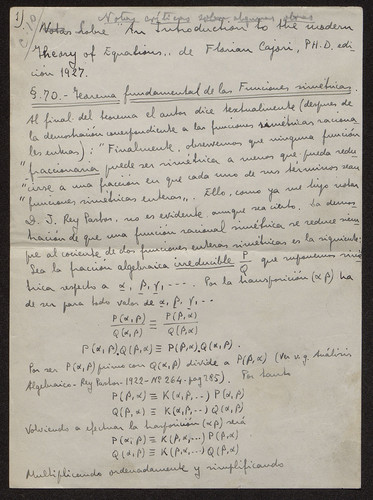 1)
Notas críticas sobre algunas obras
Notas sobre "An Introduction to the modern
Theory of Equations,, de Florian Cajori, PH.D. edi-
ción 1927.
§.70.- Teorema fundamental de las Funciones simétricas.
Al final del teorema el autor dice textualmente (después de
la demostración correspondiente a las funciones simétricas raciona
les enteras): "Finalmente, observemos que ninguna función
"fraccionaria puede ser simétrica a menos que pueda redu-
"cirse a una fracción en que cada uno de sus términos sean
"funciones simétricas enteras,,. Ello, como ya me hizo notar
D. J. Rey Pastor, no es evidente, aunque sea cierto. La demos-
tración de que una función racional simétrica se reduce siem-
pre al cociente de dos funciones enteras simétricas es la siguiente:
Sea la fracción algebraica irreducible P/Q que suponemos simé-
trica respecto a α, β, γ, ... Por la transposición (α β) ha
de ser para todo valor de α, β, γ, ...
P(α,β)/Q(α,β) ≡ P(β,α)/Q(β,α)
P(α,β).Q(β,α) ≡ P(β,α).Q(α,β).
Por ser P(α,β) primo con Q(α,β) divide a P(β,α) (Véa v.g. Análisis
Algebraico - Rey Pastor - 1922 - Nº 264 - pag 285). Por tanto
P(β,α) ≡ K(α,β,..) P(α,β)
Q(β,α) ≡ K(α,β,..) Q(α,β)
Volviendo a efectuar la trasposición (α β) será
P(α,β) ≡ K(β,α,...) P(β,α)
Q(α,β) ≡ K(β,α,...) Q(β,α)
Multiplicando ordenadamente y simplificando